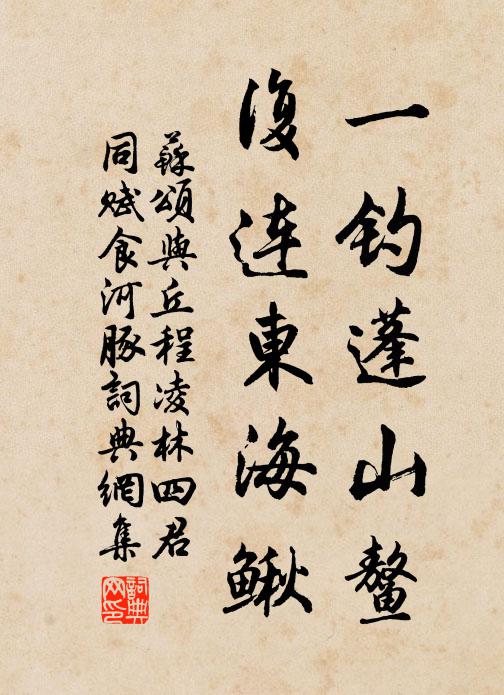 一钓蓬山鳌
復连東海鳅
蘇頌與丘程凌林四君
同赋食河豚詞典網集
詞典
网印